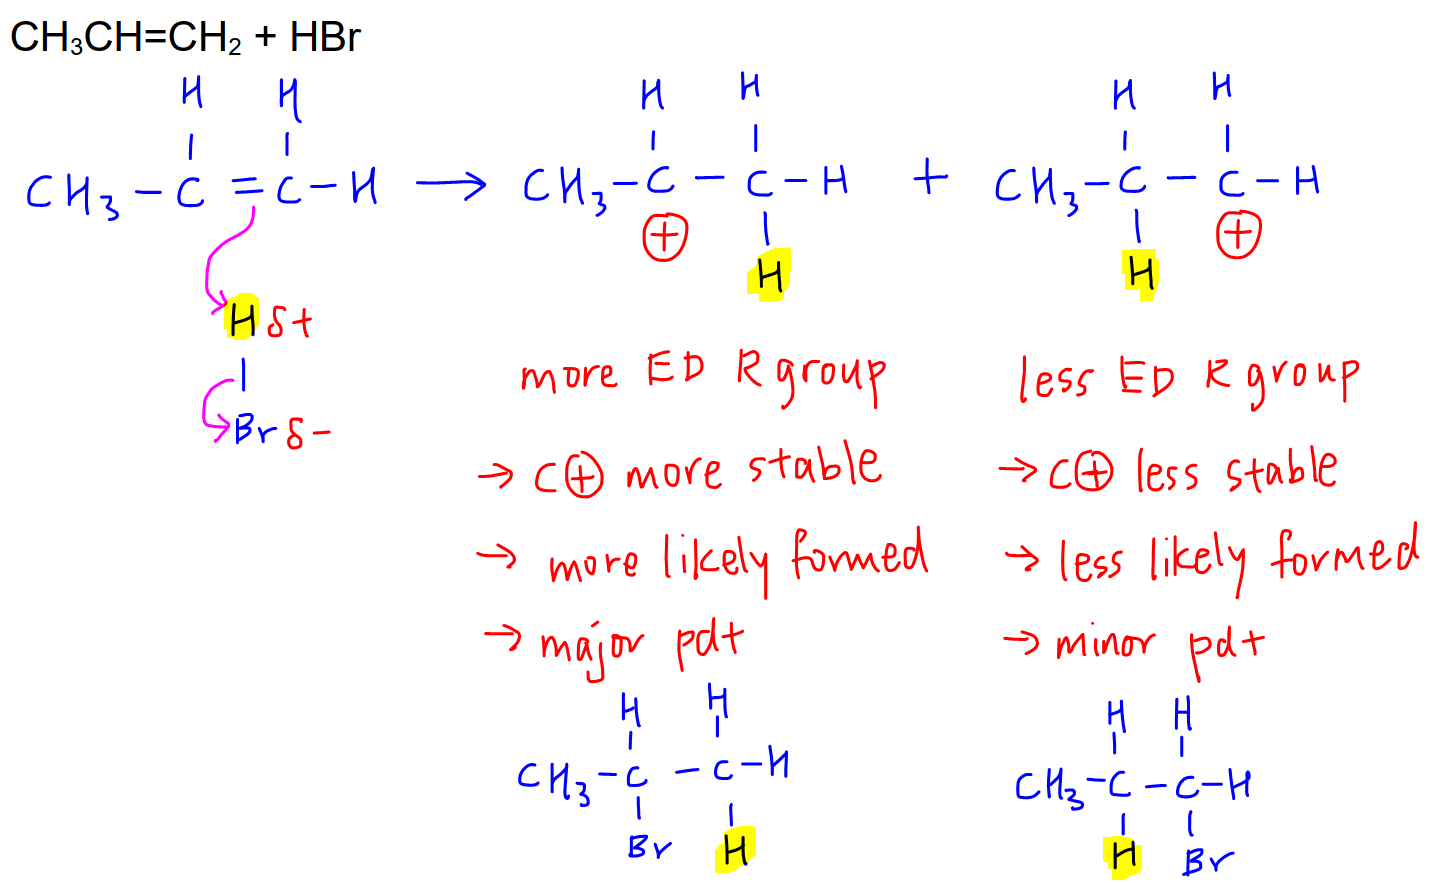 CH₃CH=CH₂ + HBr
H H H H H H
CH₃ – C = C – H → CH₃ – C – C – H + CH₃ – C – C – H
⊕ H H ⊕
H δ+
Br δ−
more ED R group
→ C⊕ more stable
→ more likely formed
→ major pdt
H H
CH₃ – C – C – H
Br H
less ED R group
→ C⊕ less stable
→ less likely formed
→ minor pdt
H H
CH₃ – C – C – H
H Br